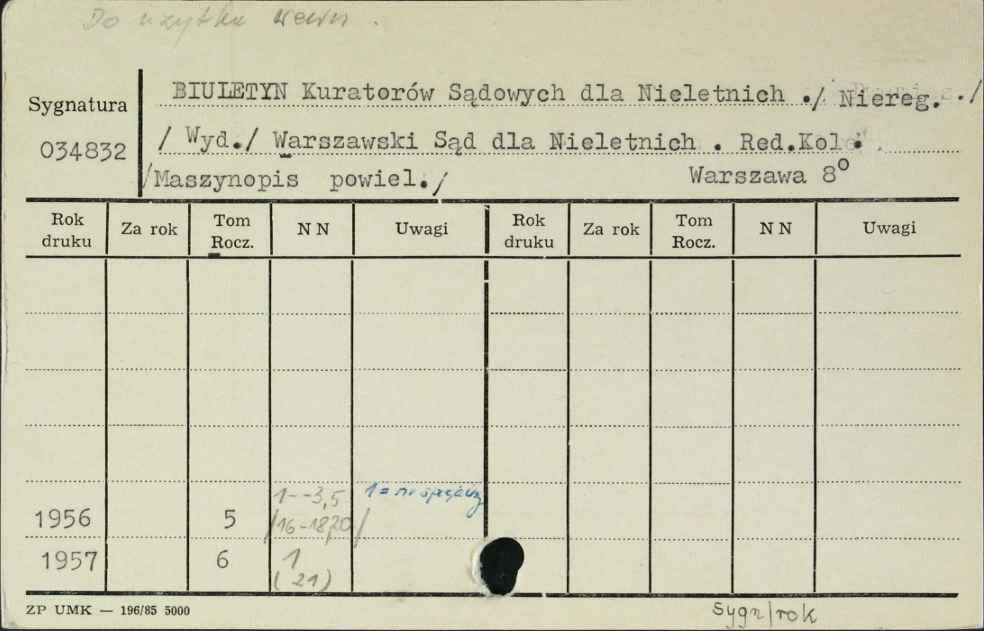 Do użytku wewn.
BIULETYN Kuratorów Sądowych dla Nieletnich ./ Niereg../
Sygnatura
/ Wyd./ Warszawski Sąd dla Nieletnich . Red.Kol.
034832
/Maszynopis powiel./ Warszawa 8°
Rok druku Za rok Tom Rocz. N N Uwagi Rok druku Za rok Tom Rocz. N N Uwagi
1--3,5 1 = nr specjalny
1956 5 /16-18,20/
1957 6 1
(21)
ZP UMK — 196/85 5000
Sygn/rok